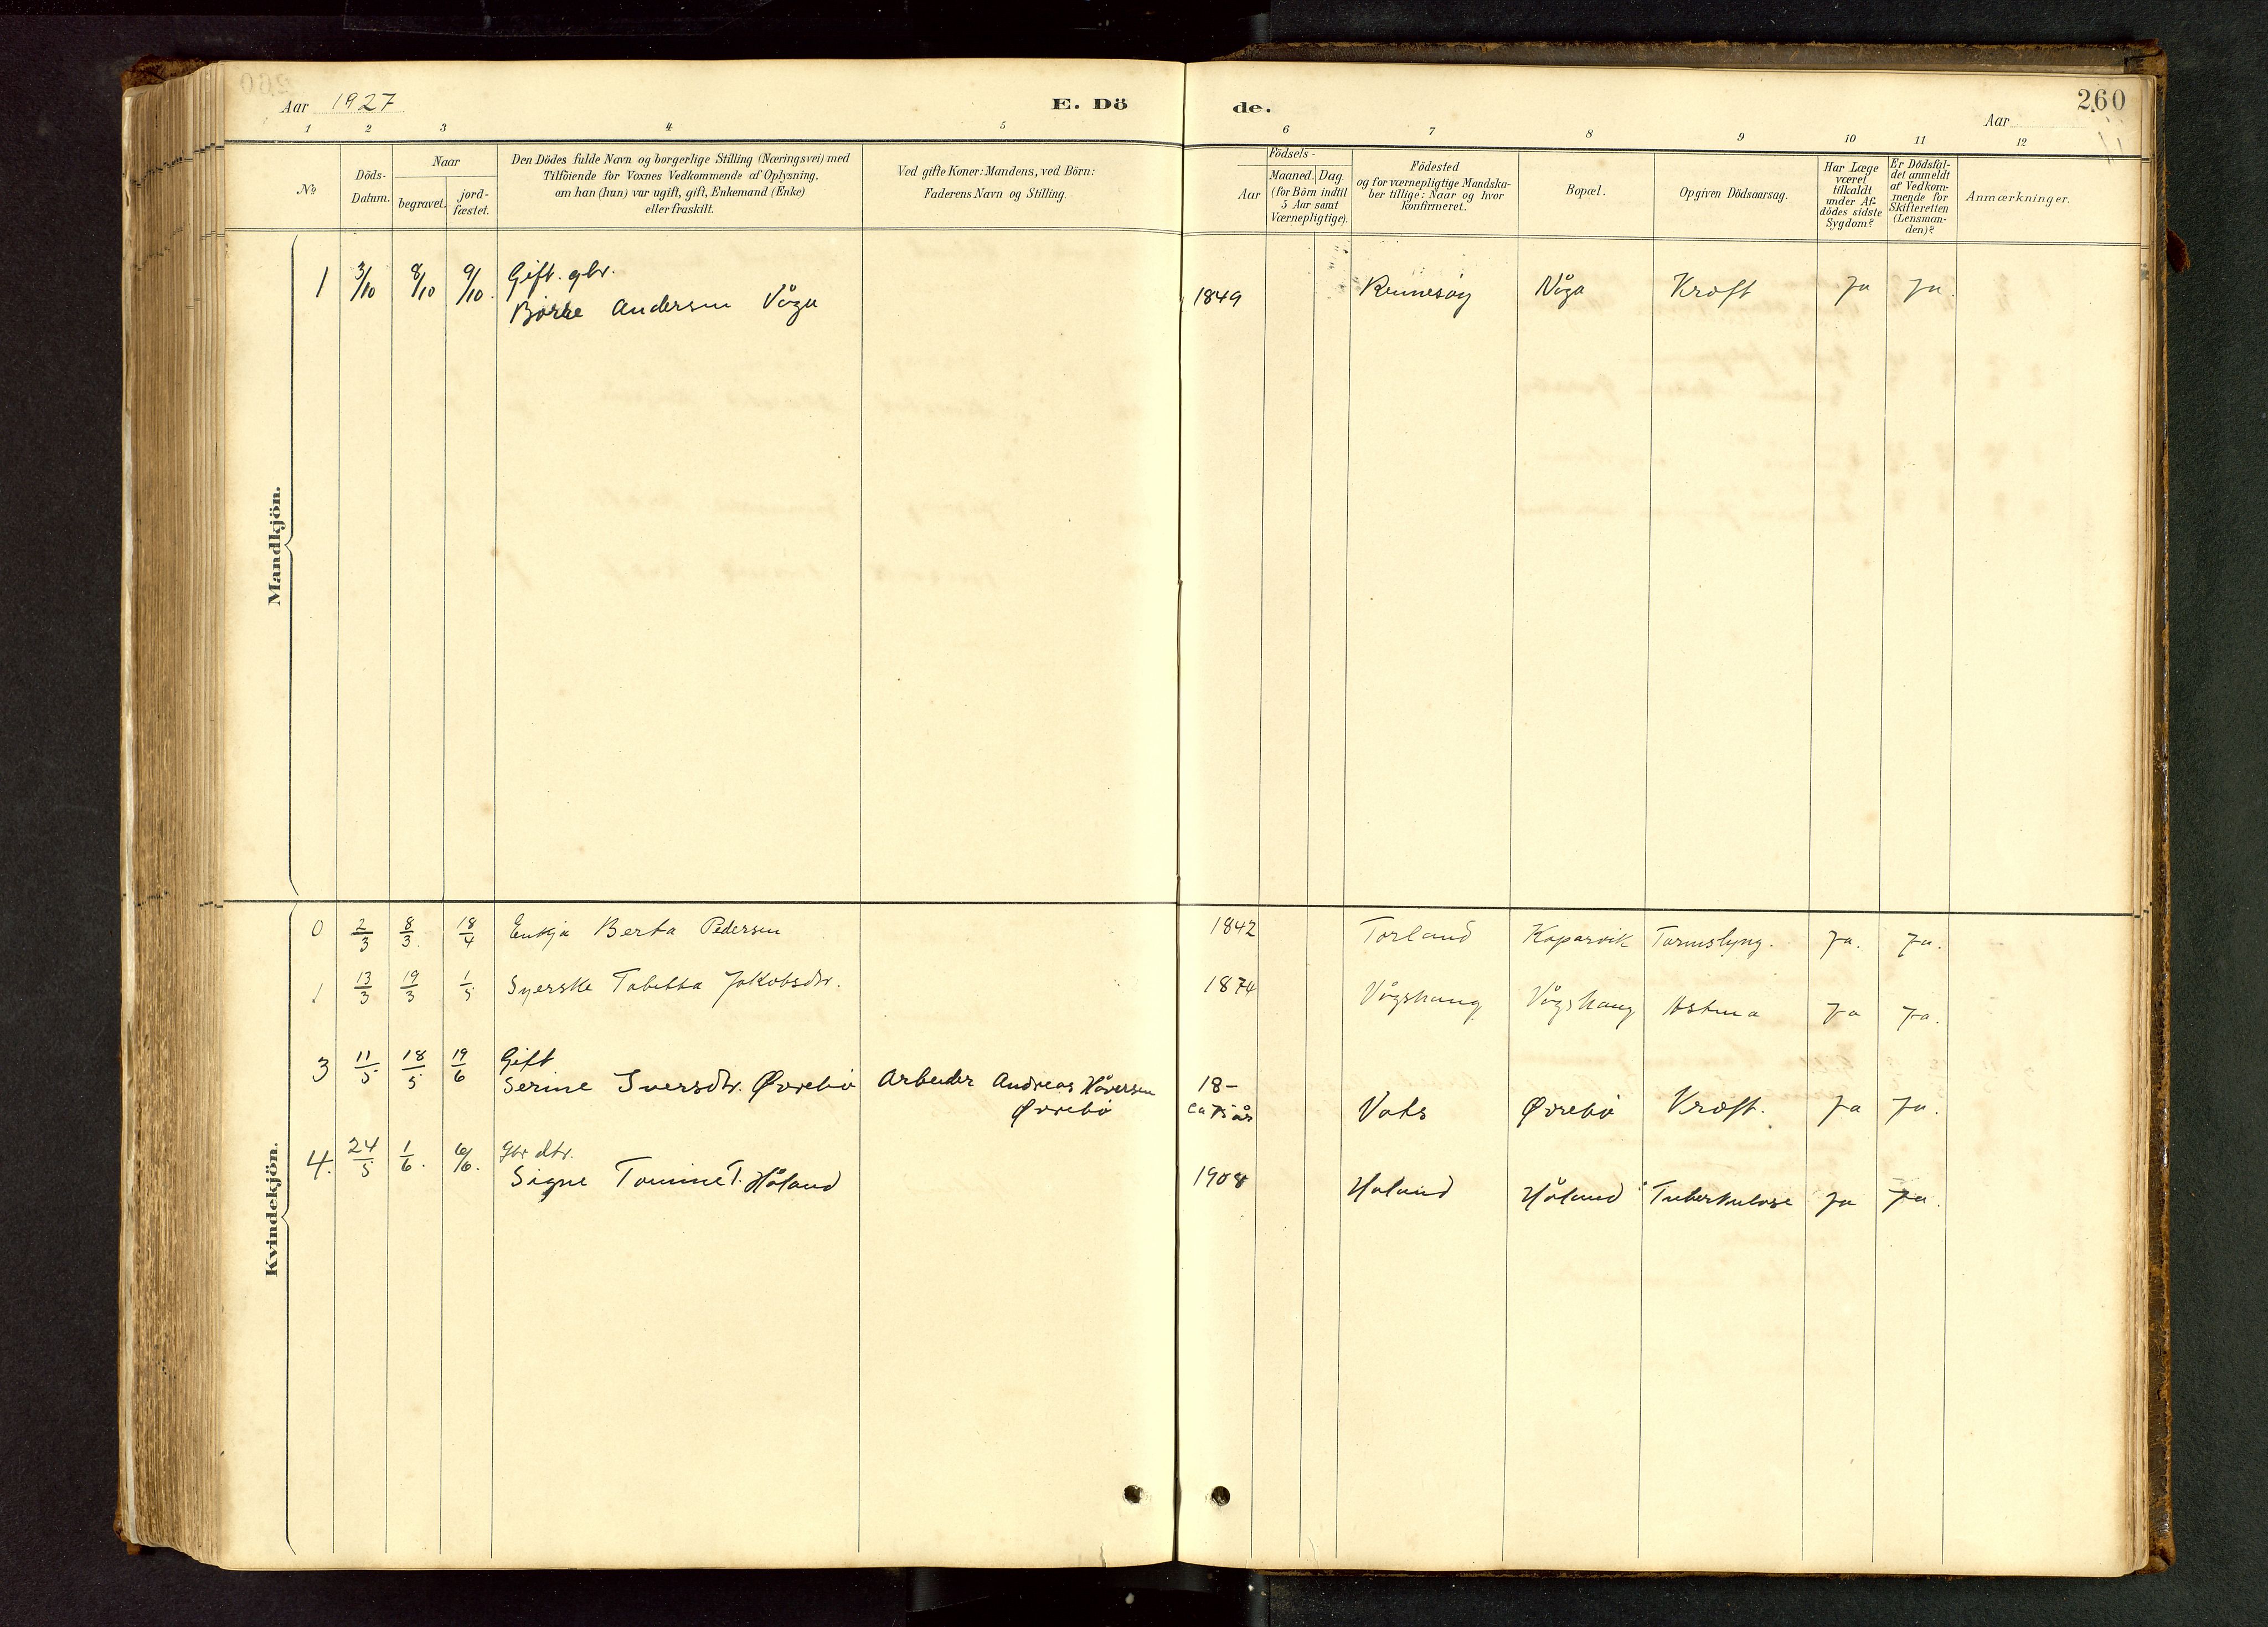 Aar 1927
E. Dö
de.
260
Aar
1 2 3 4 5 6 7 8 9 10 11 12
№
Döds-
Datum.
Naar
begravet.
jord-
fæstet.
Den Dödes fulde Navn og borgerlige Stilling (Næringsvei) med
Tilföiende for Voxnes Vedkommende af Oplysning,
om han (hun) var ugift, gift, Enkemand (Enke)
eller fraskilt.
Ved gifte Koner: Mandens, ved Börn:
Faderens Navn og Stilling.
Födsels-
Aar
Maaned. Dag.
(for Börn indtil
5 Aar samt
Værnepligtige).
Födested
og for værnepligtige Mandska-
ber tillige: Naar og hvor
konfirmeret.
Bopæl.
Opgiven Dödsaarsag.
Har Læge
været
tilkaldt
under Af-
dödes sidste
Sygdom?
Er Dödsfal-
det anmeldt
af Vedkom-
mende for
Skifteretten
(Lensman-
den)?
Anmærkninger.
Mandkjön.
1 3/10 8/10 9/10. Gift. gbr.
Börre Andersen Våga 1849 Rennesøy Våga Kræft Ja Ja.
Kvindekjön.
0 2/3 8/3. 18/4 Enkja Berta Pedersen 1842 Torland Kopervik Tarmslyng. Ja. Ja.
1 13/3 19/3 1/5 Syerske Tabitta Jakobsdtr. 1874 Vågshaug Vågshaug Astma Ja Ja.
3 11/5 18/5 19/6 Gift
Serine Iversdtr. Øvrebö Arbeider Andreas Håversen 18-
Øvrebö ca 75 år Vats Øvrebö Kræft. Ja Ja.
4. 24/5 1/6. 6/6. gbr dtr.
Signe Tomine T. Håland 1908 Håland Håland Tuberkulose Ja Ja.